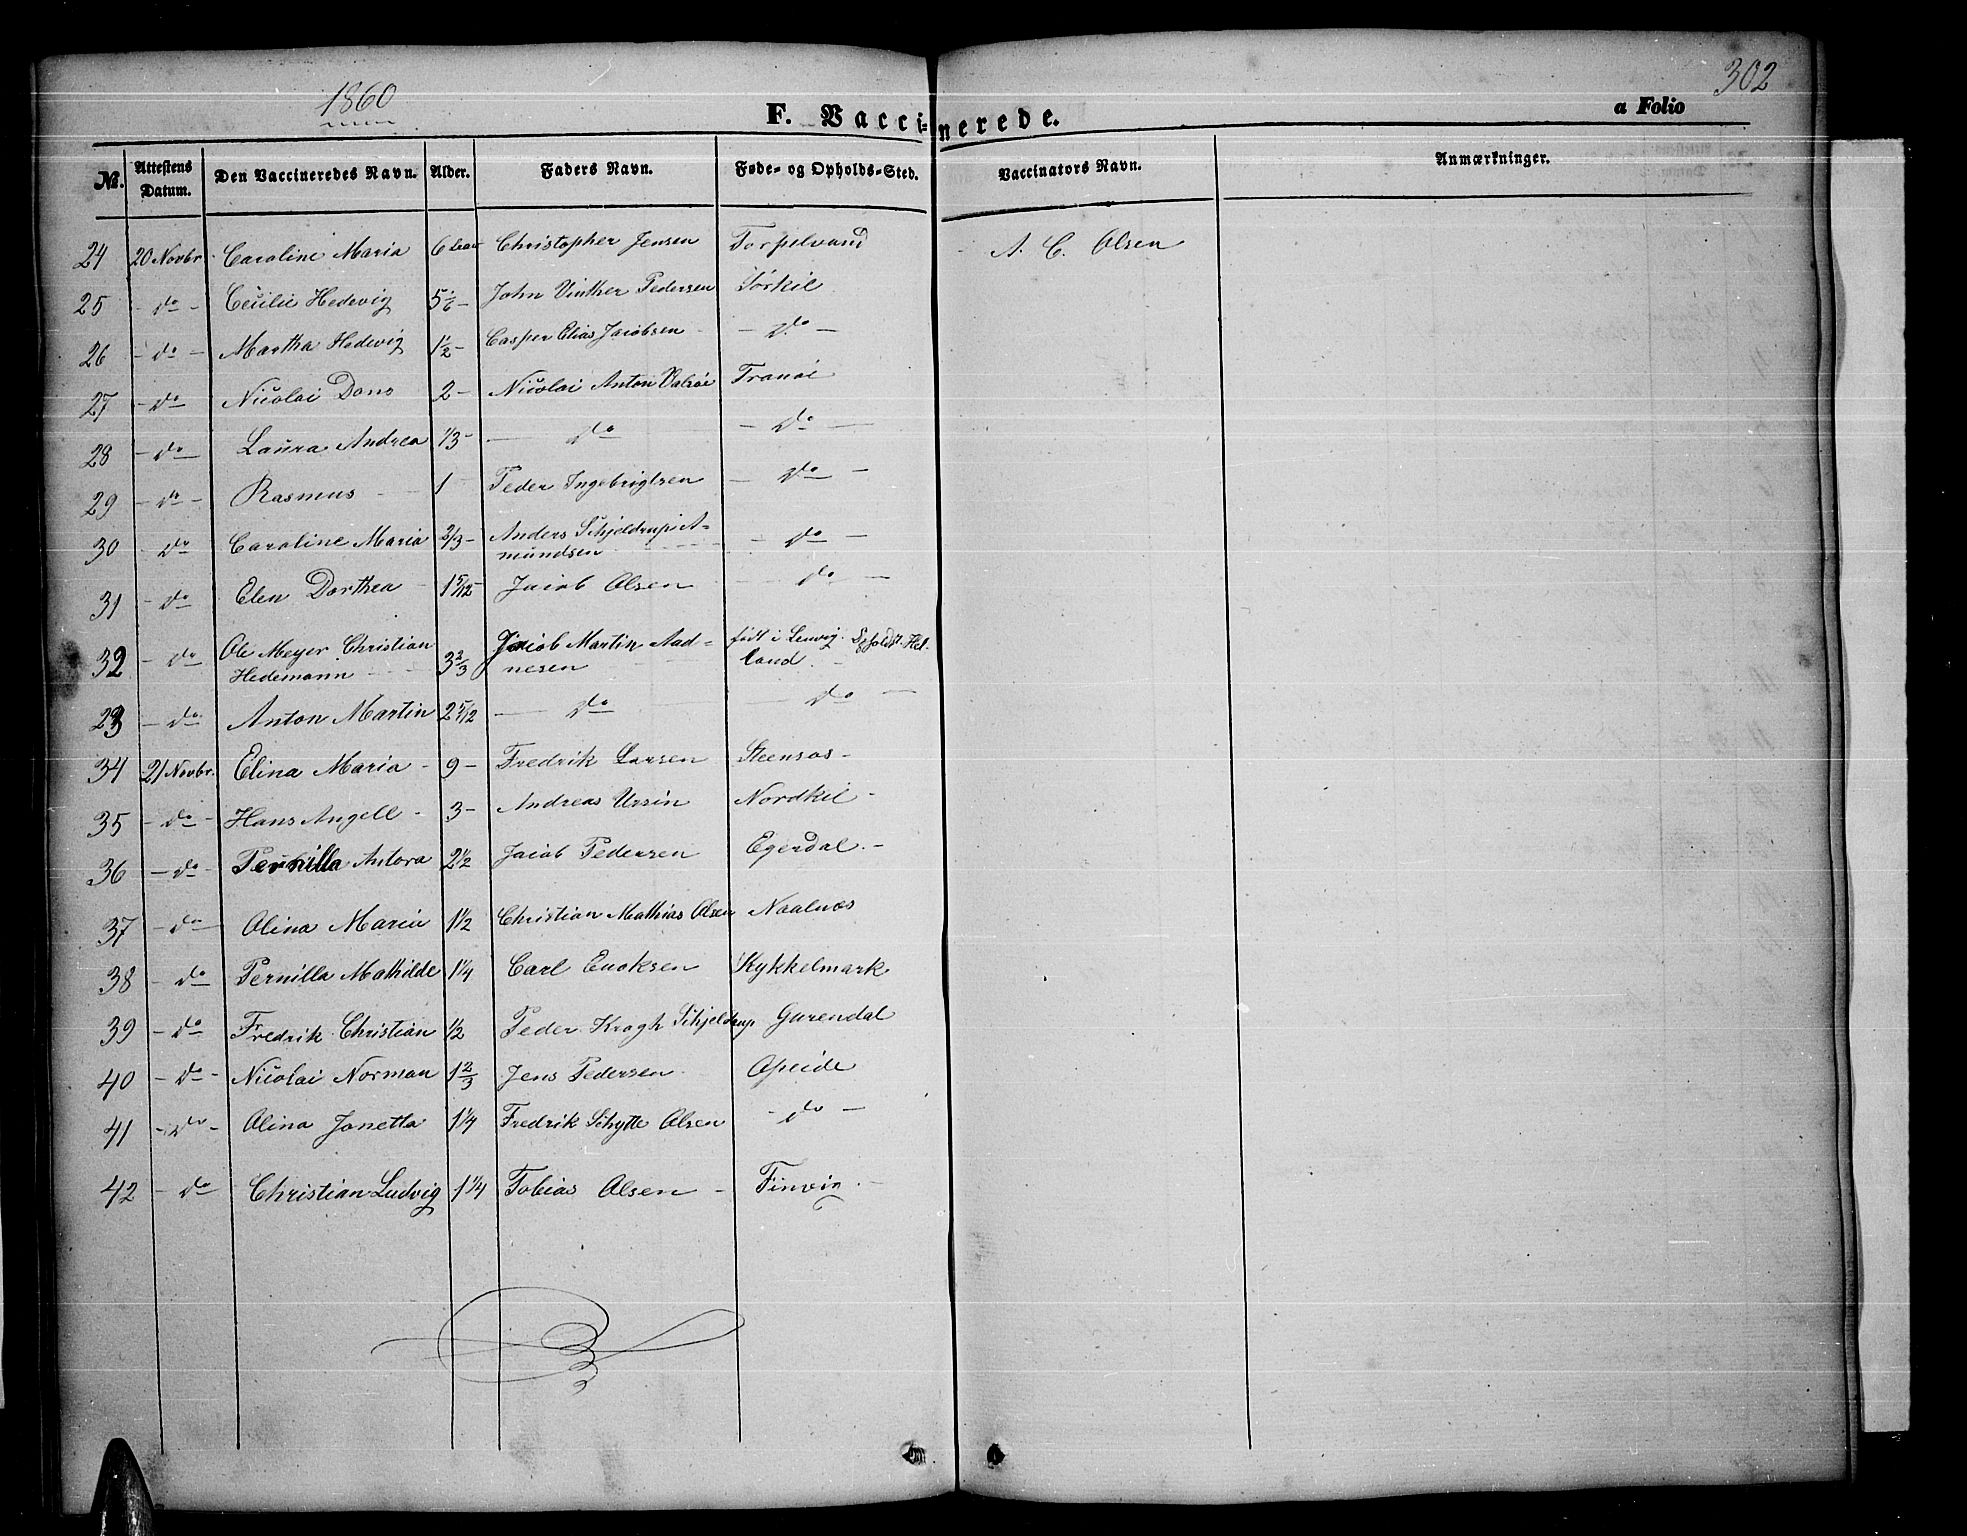 1860
302
F. Vaccinerede.
a Folio
No.
Attestens Datum.
Den Vaccineredes Navn.
Alder.
Faders Navn.
Føde- og Opholds-Sted.
Vaccinators Navn.
Anmærkninger.
24 20 Novbr. Caroline Maria 6 Christopher Jensen Torpelvand A. C. Olsen
25 – do – Cecilie Hedevig 5 1/6 – John Vinther Pedersen Sørkil
26 – do – Martha Hedevig 1½ – Casper Elias Jacobsen – do –
27 – do Nicolai Dons 2 – Nicolai Anton Tranøe
28 – do Laura Andrea 1/3 – – do – do –
29 – do – Rasmus – 1 Peder Ingebrigtsen – do –
30 – do Caroline Maria 2/3 – Anders Schjeldrup A-
mundsen – do –
31 – do Elen Dorthea – 1 5/12 – Jacob Olsen – do –
32 – do Ole Meyer Christian 3 2/3 Jacob Martin Aad- født i Lenvig. Opholdst. Hel-
Hedemann nesen land. –
33 – do Anton Martin 2 5/12 – do – do –
34 21 Novbr. Elina Maria – 9 – Fredrik Larsen Steensøs –
35 – do – Hans Angell – 3 – Andreas Ursin Nordkil –
36 – do – Pernilla Antora 2½ Jacob Pedersen Egerdal. –
37 – do Olina Maria 1½ Christian Mathias Olsen Naalnæs
38 – do Pernilla Mathilde 1¼ Carl Enoksen Kykkelmark
39 – do Fredrik Christian ½ Peder Krogh Schjeldrup Gurendal
40 – do – Nicolai Norman 1 2/3 Jens Pedersen Opeide
41 – do – Olina Jonetta 1¼ Fredrik Schytte Olsen – do –
42 – do Christian Ludvig 1¼ Tobias Olsen – Finvig. –